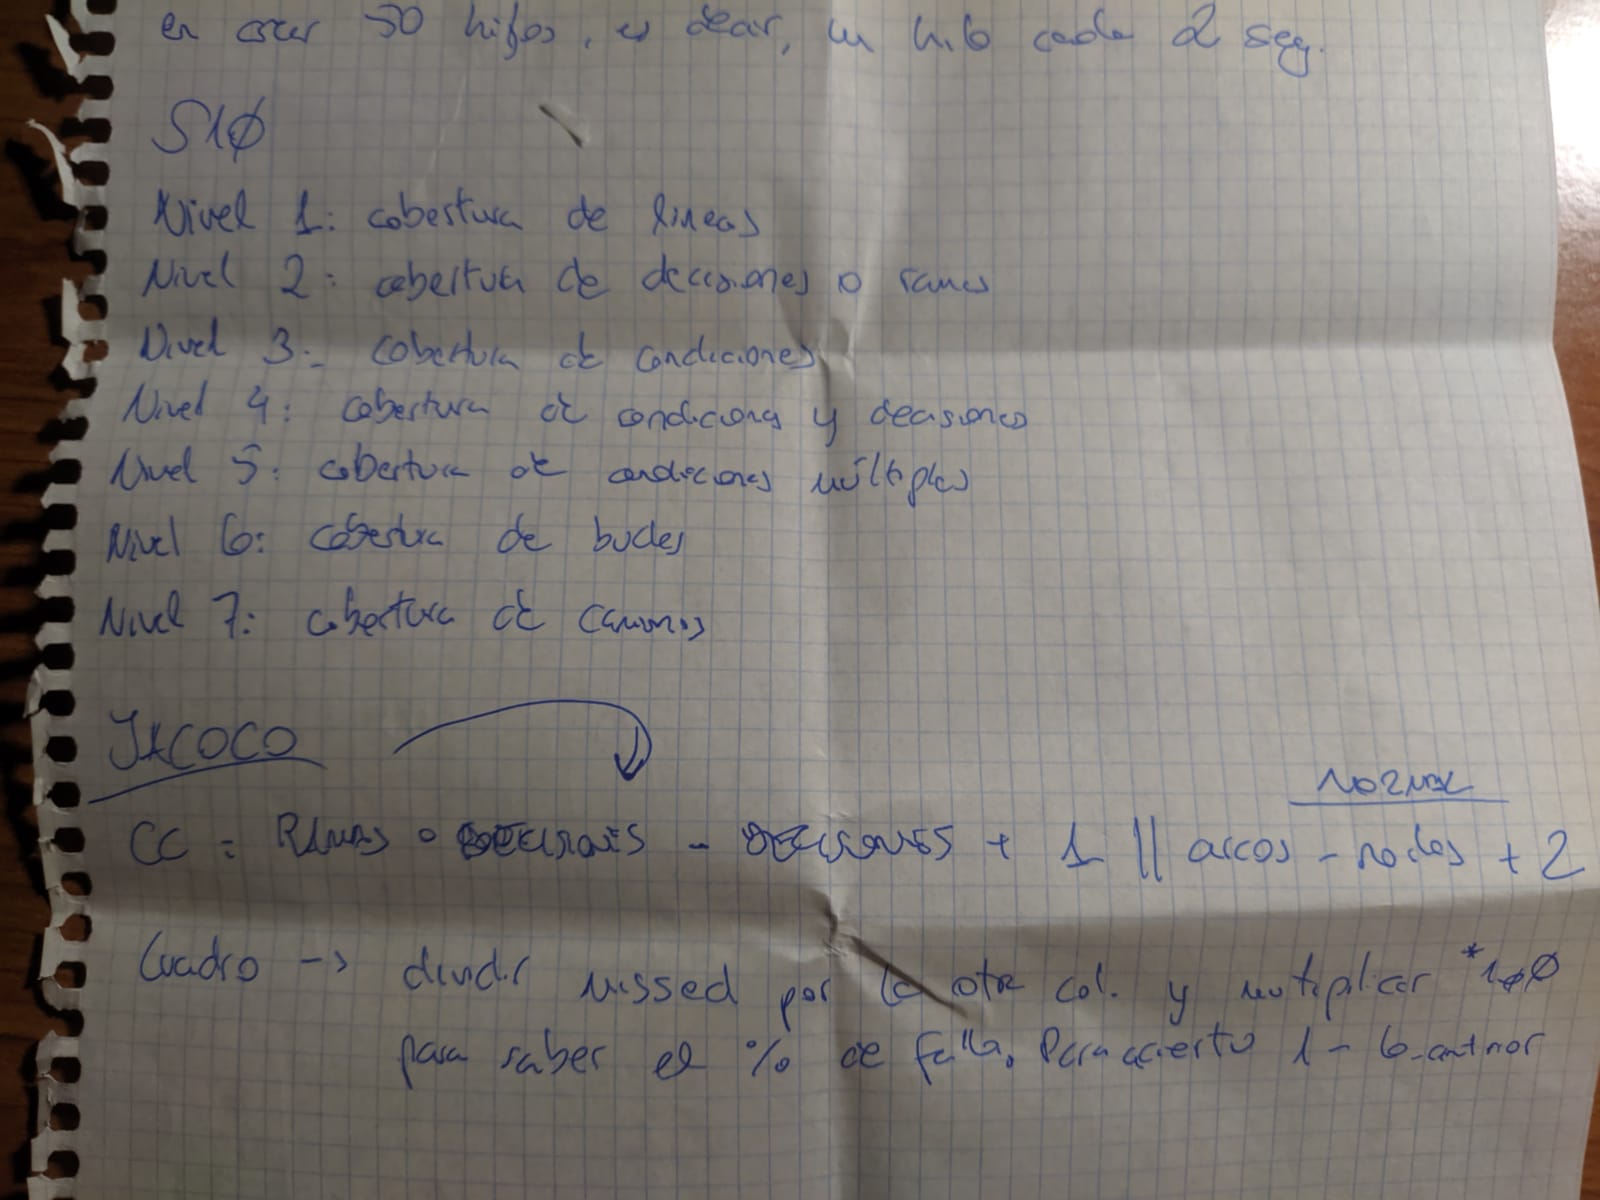 en crear 50 hilos, es decir, un hilo cada 2 seg.
S1Ø
Nivel 1: cobertura de lineas
Nivel 2: cobertura de decisiones o ramas
Nivel 3: cobertura de condiciones
Nivel 4: cobertura de condiciones y decisiones
Nivel 5: cobertura de condiciones múltiples
Nivel 6: cobertura de bucles
Nivel 7: cobertura de caminos
JACOCO
NORMAL
CC = RAMAS o DECISIONES - DECISIONES + 1 || arcos - nodos + 2
Cuadro -> dividir missed por la otra col. y multiplicar *1ØØ
para saber el % de falla. Para acierto 1 - lo anterior